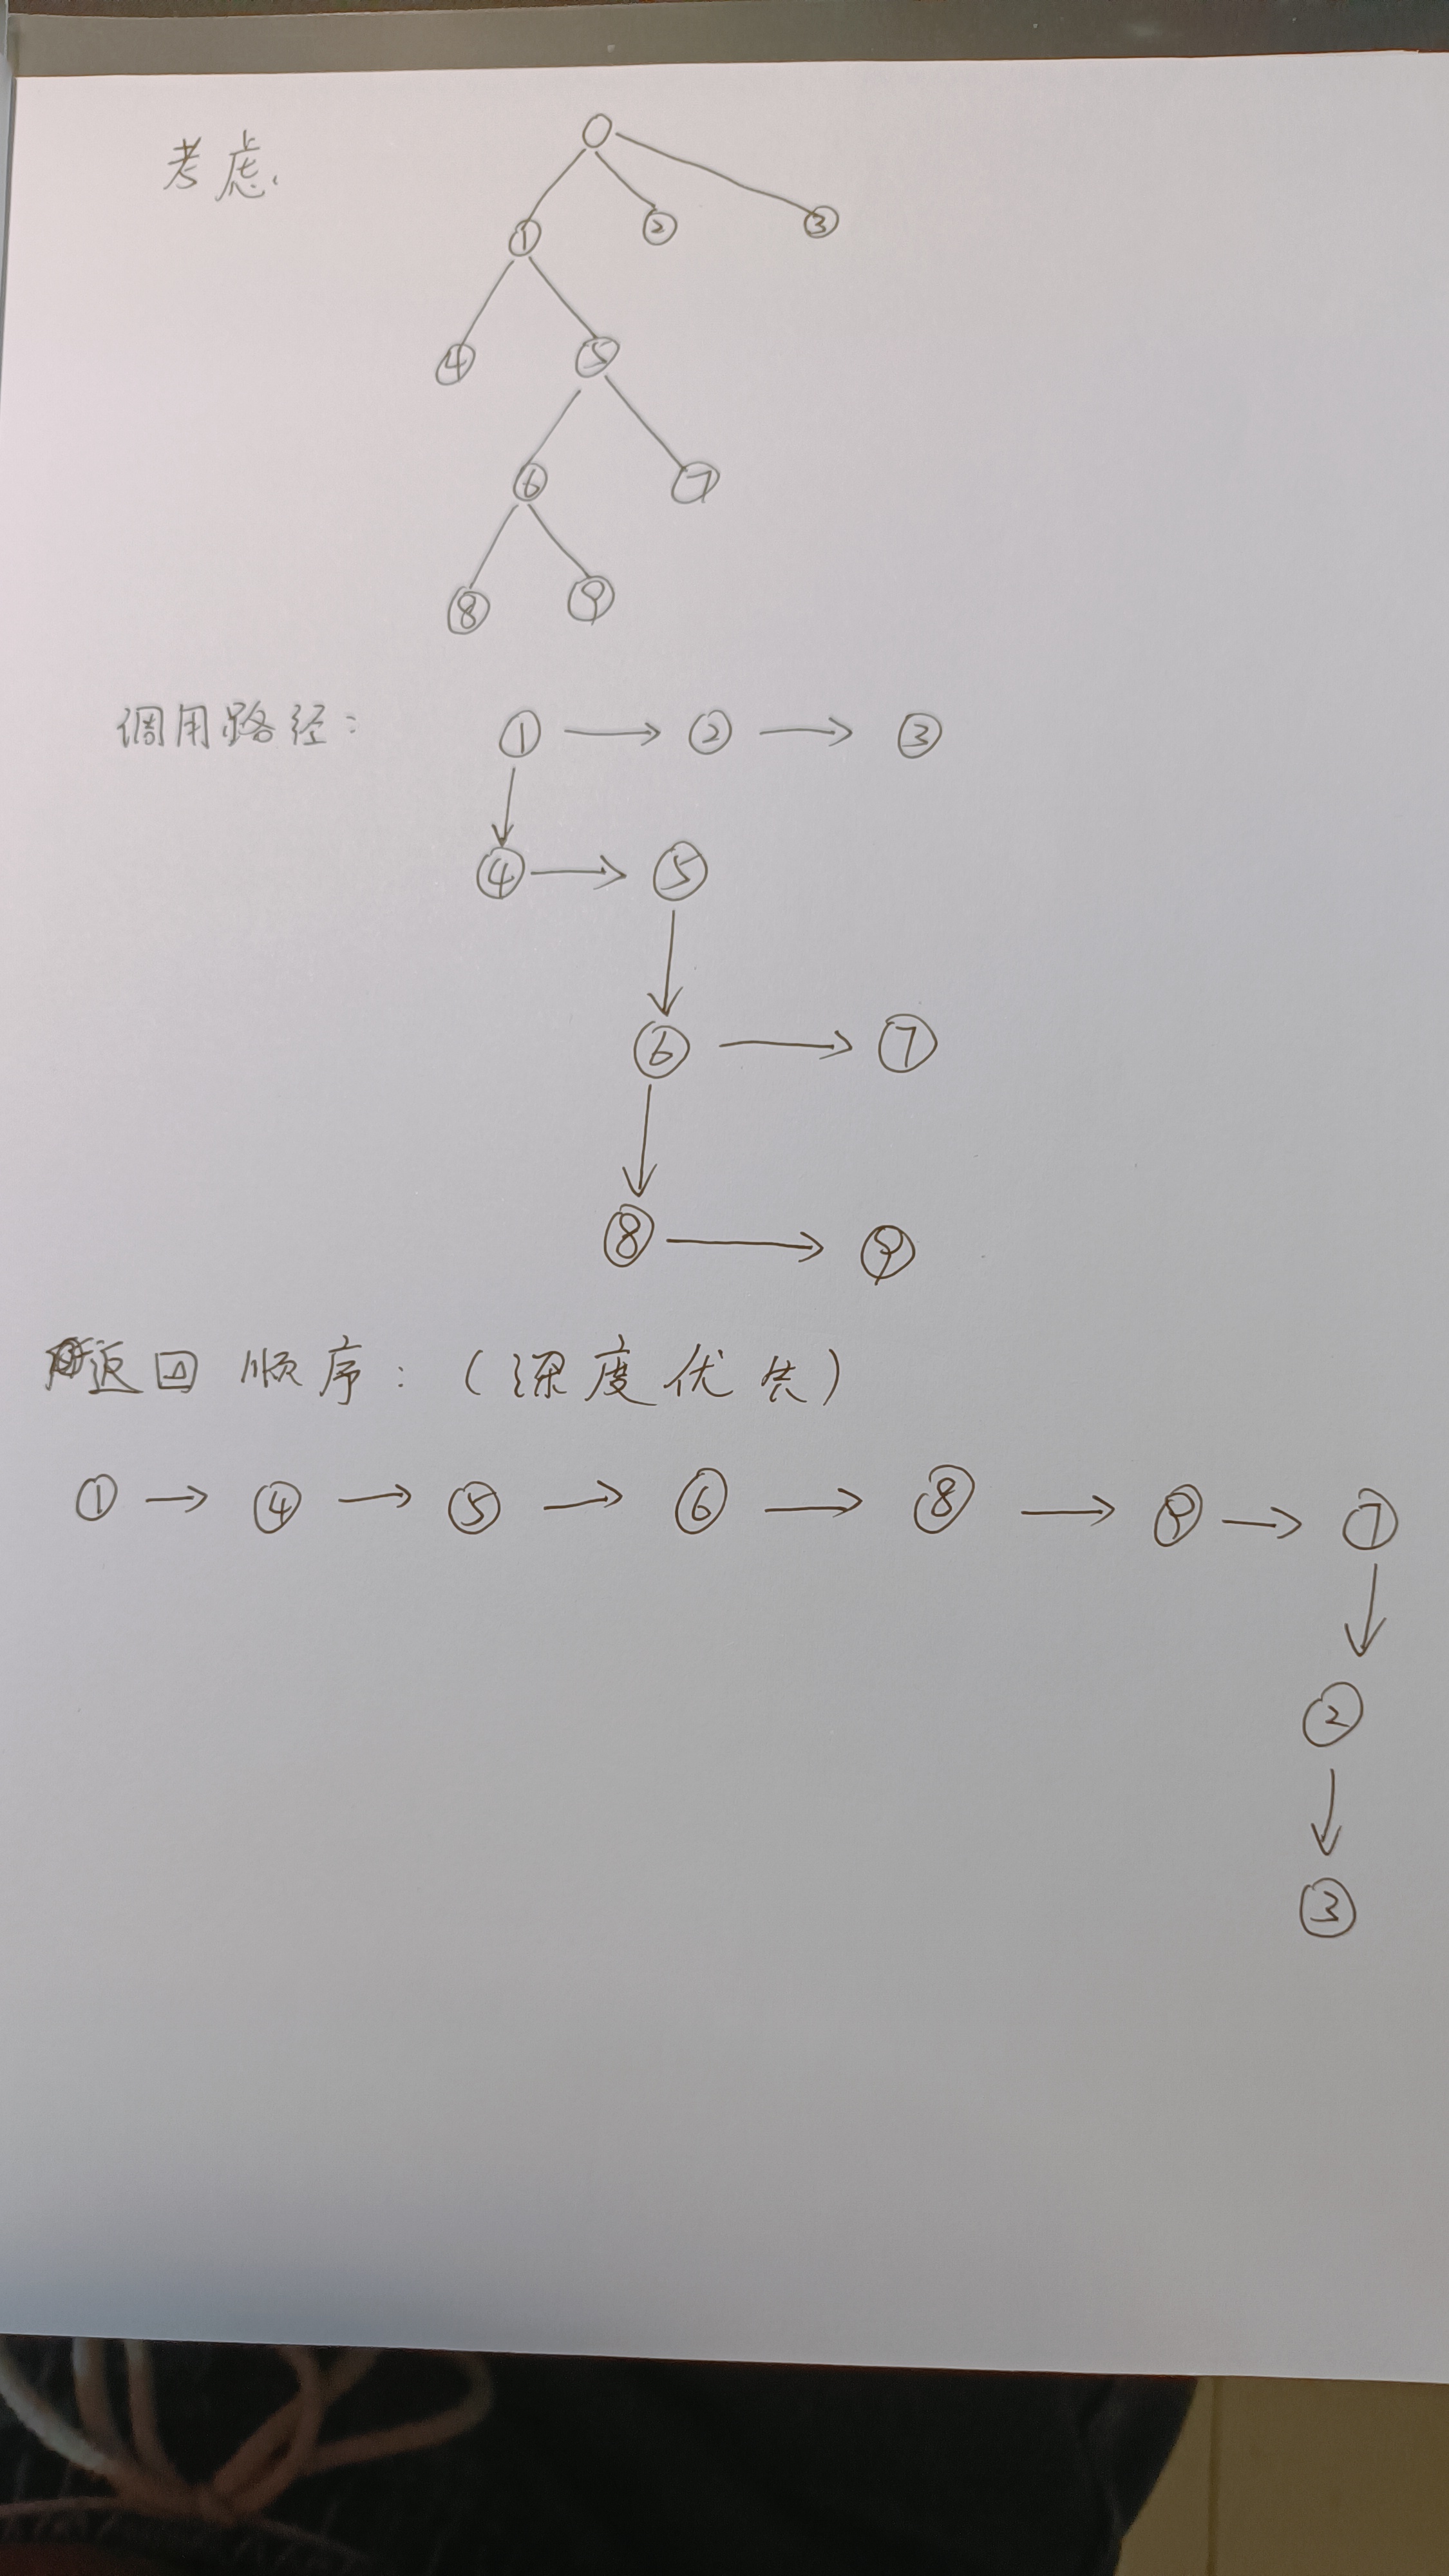 考虑.
① ② ③
④ ⑤
⑥ ⑦
⑧ ⑨
调用路径: ① → ② → ③
④ → ⑤
⑥ → ⑦
⑧ → ⑨
返回 顺序: (深度优先)
① → ④ → ⑤ → ⑥ → ⑧ → ⑨ → ⑦
②
③